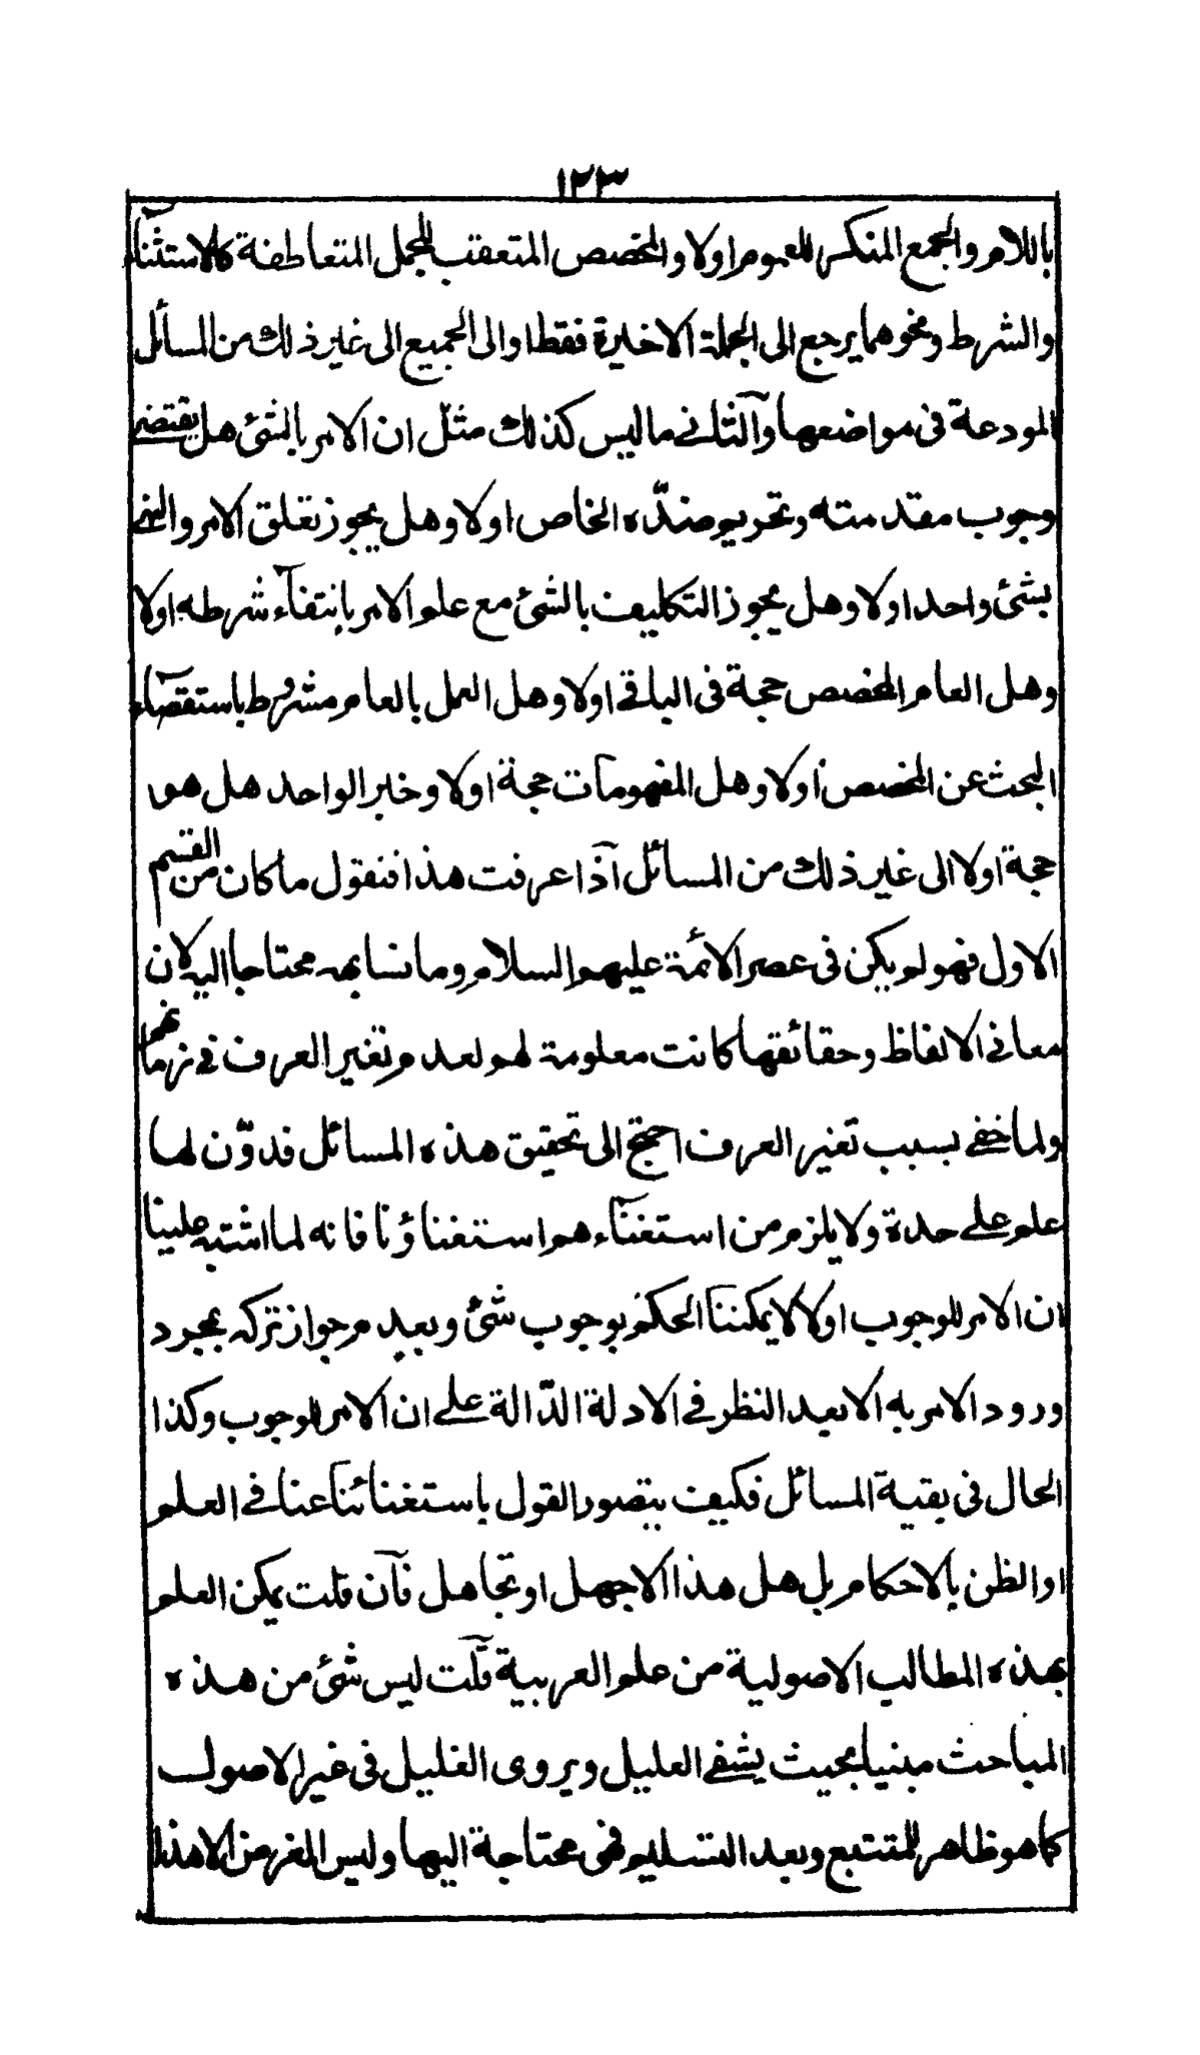 ١٢٣
باللام والجمع المنكر للعموم اولا والمخصص المتعقب للجمل المتعاطفة كالاستثناء
والشرط ونحوهما يرجع الى الجملة الاخيرة فقط او الى الجميع الى غير ذلك من المسائل
المودعة فى مواضعها والثانى ما ليس كذلك مثل ان الامر بالشئ هل يقتضى
وجوب مقدمته وتحريم ضدّه الخاص اولا وهل يجوز تعلق الامر والنهى
بشئ واحد اولا وهل يجوز التكليف بالشئ مع علم الامر بانتفاء شرطه اولا
وهل العام المخصص حجة فى الباقى اولا وهل العمل بالعام مشروط باستقصاء
البحث عن المخصص اولا وهل المفهومات حجة اولا وخبر الواحد هل هو
حجة اولا الى غير ذلك من المسائل اذا عرفت هذا فنقول ما كان من القسم
الاول فهو لم يكن فى عصر الائمة عليهم السلام وما شابهه محتاجا اليه لان
معانى الالفاظ وحقائقها كانت معلومة لهم لعدم تغير العرف فى زمانهم
ولما خفى بسبب تغير العرف احتج الى تحقيق هذه المسائل فدوّن لها
علم على حدة ولا يلزم من استغناء هم استغناؤنا فانه لما اشتبه علينا
ان الامر للوجوب اولا لا يمكننا الحكم بوجوب شئ وبعدم جواز تركه بمجرد
ورود الامر به الا بعد النظر فى الادلة الدّالة على ان الامر للوجوب وكذا
الحال فى بقية المسائل فكيف يتصور القول باستغنائنا عنا فى العلم
او الظن بالاحكام بل هل هذا الا جهل او تجاهل فان قلت يمكن العلم
بهذه المطالب الاصولية من علم العربية قلت ليس شئ من هذه
المباحث مبنيا بحيث يشفى العليل ويروى الغليل فى غير الاصول
كما هو ظاهر للمتتبع وبعد التسليم فهى محتاجة اليها وليس الغرض الا هذا